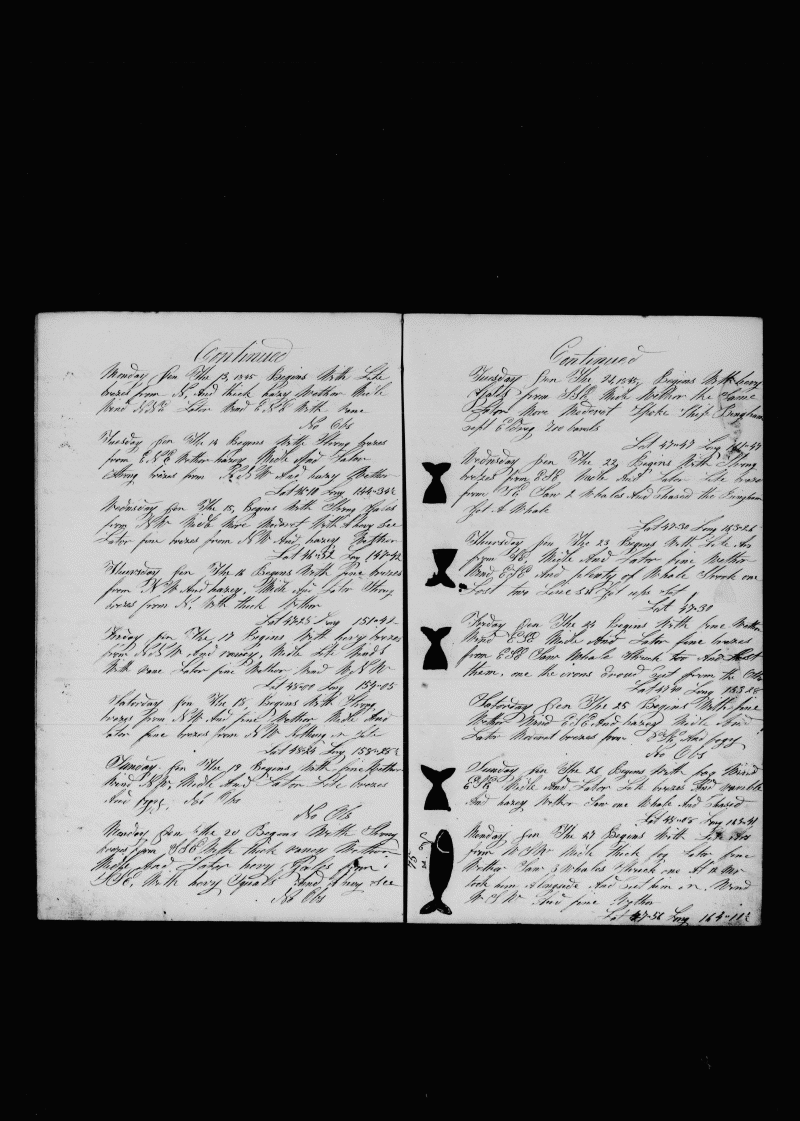 Continued
Monday Jen The 13, 1845 Begins With Lite
brezes from N, And thick hazey Wether Midle
Wind N.N.E Later Wind E.S.E With fine
No Obs
Tuesday Jen The 14 Begins With Strong brezes
from E.N.E Wether hazey Midle And Later
Strong brezes from N.W And hazy Wether
Lat 46-10 Long 144-34
Wednsday Jen The 15, Begins With Strong Gales
from N.W. Midle More Moderat With A hevy See
Later fine brezes from N.W And hazey Wether
Lat 46-32 Long 147-42
Thursday Jen The 16 Begins With fine brezes
from N.W And hazey, Midle And Later Strong
brezes from N. With thick Wether
Lat 47-25 Long 151-42
Friday Jen The 17 Begins With hevy brezes
from N.W And raney, Midle Lite Winds
With rane Later fine Wether Wind W.N.W
Lat 48-00 Long 154-05
Saturday Jen The 18, Begins With Strong
brezes from N.W And fine Wether Midle And
Later fine brezes from N.W.
Lat 48-24 Long 158-25
Sunday Jen The 19 Begins With fine Wether
Wind N.W, Midle And Later Lite brezes
And fogey,
No Obs
Monday Jen The 20 Begins With Strong
brezes from S.S.E With thick raney Wether
Midle And Later hevy Gales from
S.S.E, With hevy Squals And A hevy See
No Obs
Continued
Tuesday Jen The 21, 1845, Begins With hevy
Gales from Midle Wether the Same
Later More Moderat Spoke Ship Bingham
Capt 700 barels
Lat 47-47 Long
Wednsday Jen The 22, Begins With Strong
brezes from E.S.E Midle And Later Lite brezes
from Saw 2 Whales And Chased the Bingham
Got A Whale
Lat 47-30 Long 163-26
Thursday Jen The 23, Begins With Lite Air
from Midle And Later fine Wether
Wind E.S.E And plenty of Whale Strook one
Lost two Lines
Lat 47-30
Friday Jen The 24 Begins With fine Wether
Wind E.S.E Midle And Later fine brezes
from E.S.E Saw Whale Struck too And Lost
them, one the irons drowd out from the
Lat 47-40 Long 163-28
Saturday Jen The 25 Begins With fine
Wether Wind E.S.E And hazey Midle And
Later Moderat brezes from And fogy
No Obs
Sunday Jen The 26 Begins With fog Wind
E.S.E Midle And Later Lite brezes And
And hazey Wether Saw one Whale And Chased
Lat 48-08 Long 163-41
Monday Jen The 27 Begins With Lite Airs
from W.S.W Midle thick fog Later fine
Wether Saw 3 Whales Struck one
took him Alongside And cut him in. Wind
W.S.W And fine Wether
75
Lat 47-56 Long 164-11